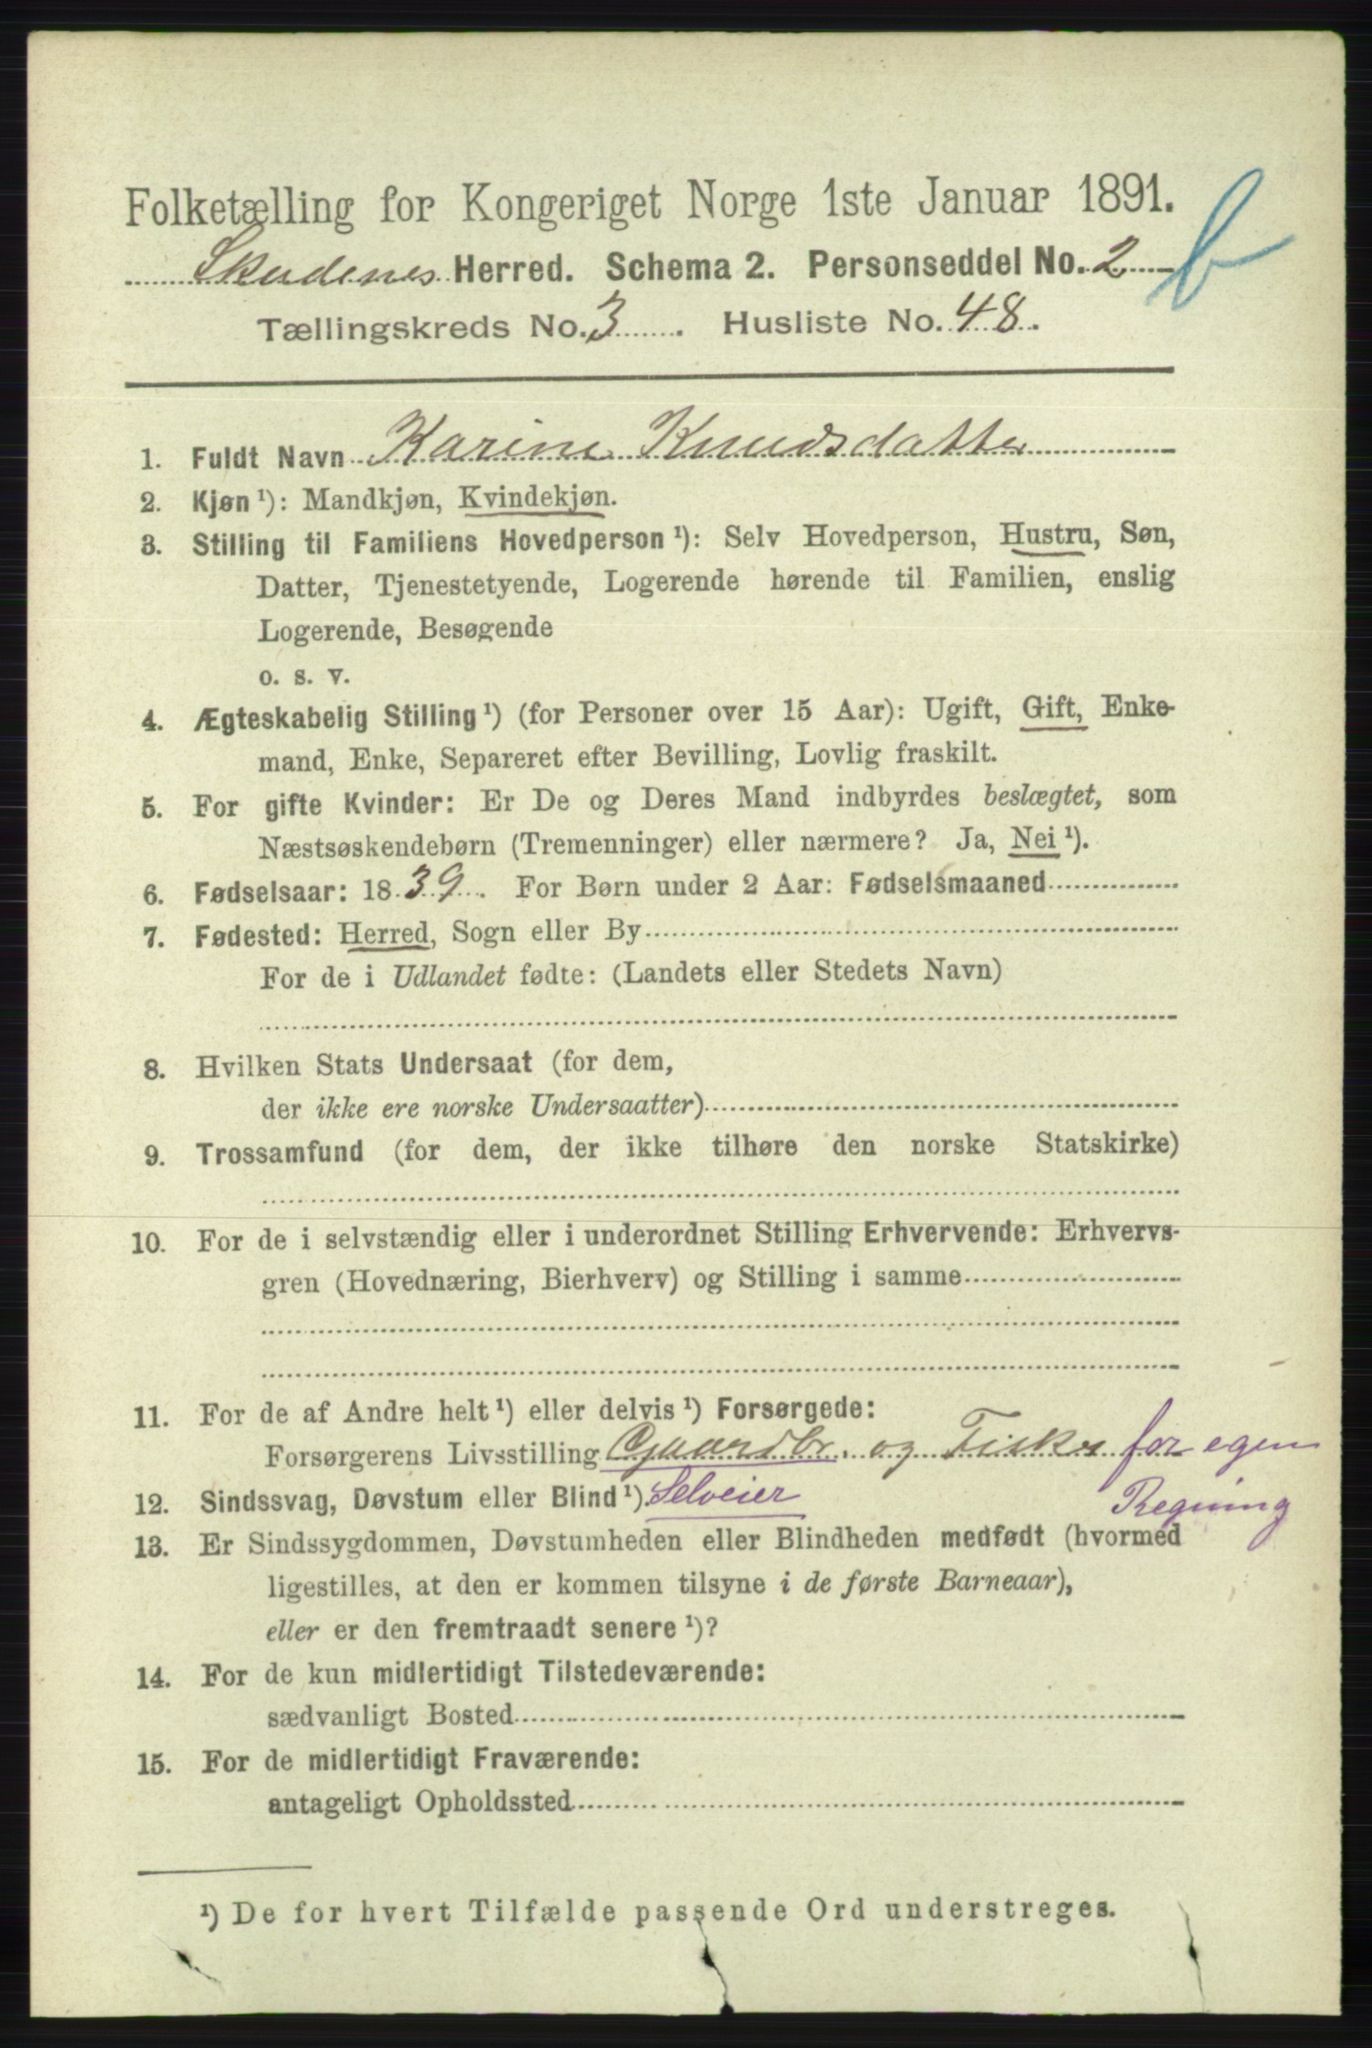 Folketælling for Kongeriget Norge 1ste Januar 1891.
b
Skudenes Herred. Schema 2. Personseddel No. 2
Tællingskreds No. 3. Husliste No. 48.
1. Fuldt Navn Karine Knudsdatter
2. Kjøn ¹): Mandkjøn, Kvindekjøn.
3. Stilling til Familiens Hovedperson ¹): Selv Hovedperson, Hustru, Søn,
Datter, Tjenestetyende, Logerende hørende til Familien, enslig
Logerende, Besøgende
o. s. v.
4. Ægteskabelig Stilling ¹) (for Personer over 15 Aar): Ugift, Gift, Enke-
mand, Enke, Separeret efter Bevilling, Lovlig fraskilt.
5. For gifte Kvinder: Er De og Deres Mand indbyrdes beslægtet, som
Næstsøskendebørn (Tremenninger) eller nærmere? Ja, Nei ¹).
6. Fødselsaar: 1839. For Børn under 2 Aar: Fødselsmaaned
7. Fødested: Herred, Sogn eller By
For de i Udlandet fødte: (Landets eller Stedets Navn)
8. Hvilken Stats Undersaat (for dem,
der ikke ere norske Undersaatter)
9. Trossamfund (for dem, der ikke tilhøre den norske Statskirke)
10. For de i selvstændig eller i underordnet Stilling Erhvervende: Erhvervs-
gren (Hovednæring, Bierhverv) og Stilling i samme
11. For de af Andre helt ¹) eller delvis ¹) Forsørgede:
Forsørgerens Livsstilling Gaardbr. og Fisker for egen
12. Sindssvag, Døvstum eller Blind ¹). Selveier Regning
13. Er Sindssygdommen, Døvstumheden eller Blindheden medfødt (hvormed
ligestilles, at den er kommen tilsyne i de første Barneaar),
eller er den fremtraadt senere ¹)?
14. For de kun midlertidigt Tilstedeværende:
sædvanligt Bosted
15. For de midlertidigt Fraværende:
antageligt Opholdssted
¹) De for hvert Tilfælde passende Ord understreges.